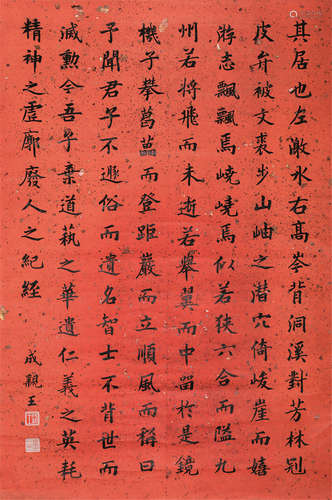 其居也左激水右高岑背洞溪對芳林冠
皮弁被文裘步山岫之潛穴倚峻崖而嬉
游志飄飄焉嶢嶢焉似若狹六合而隘九
州若將飛而未逝若舉翼而中留於是鏡
機子攀葛藟而登距巖而立順風而稱曰
予聞君子不遯俗而遺名智士不背世而
滅勳今吾子棄道藝之華遺仁義之英耗
精神之虛廓廢人之紀經
成親王